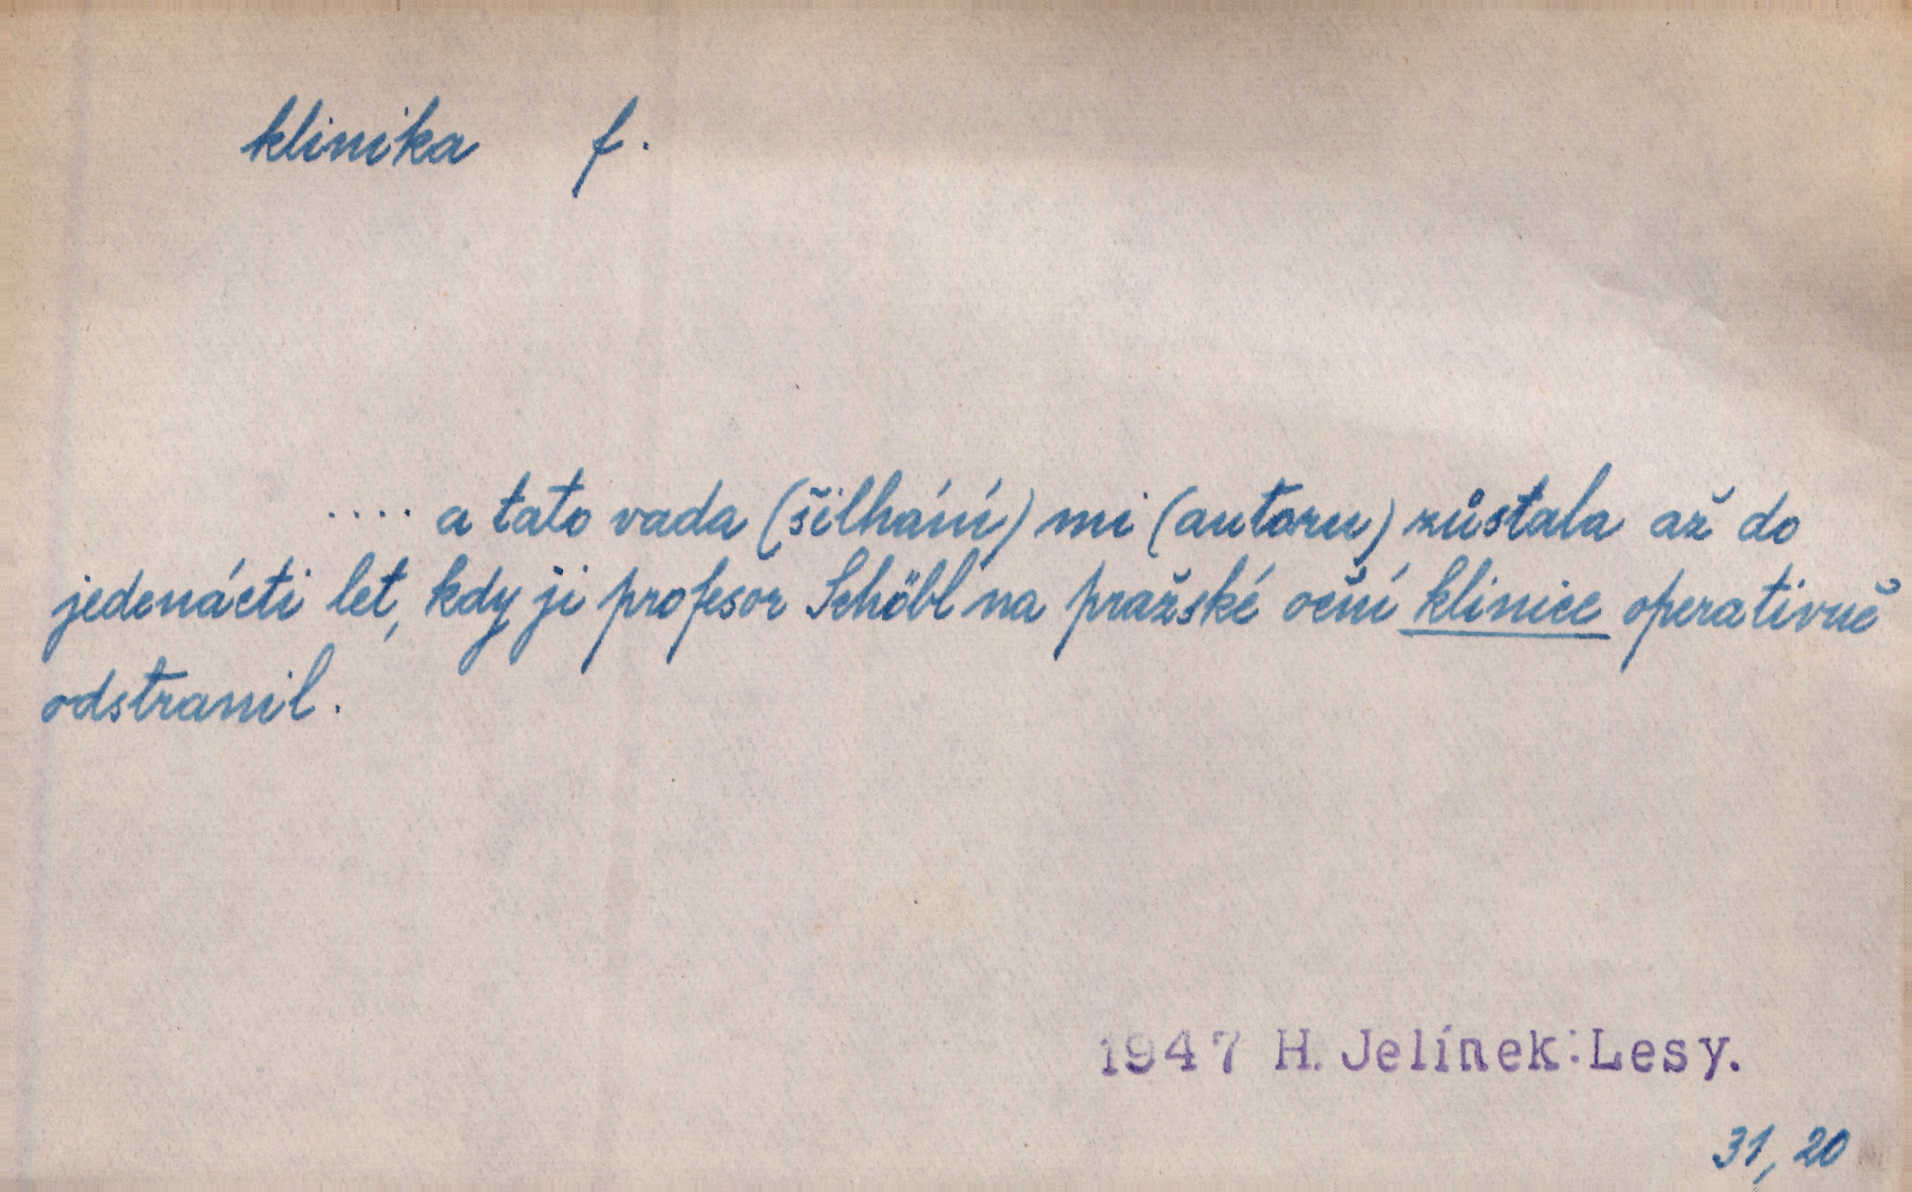 klinika f.
.... a tato vada (šilhání) mi (autoru) zůstala až do
jedenácti let, kdy ji profesor Schöbl na pražské oční klinice operativně
odstranil.
1947 H. Jelínek: Lesy.
31, 20